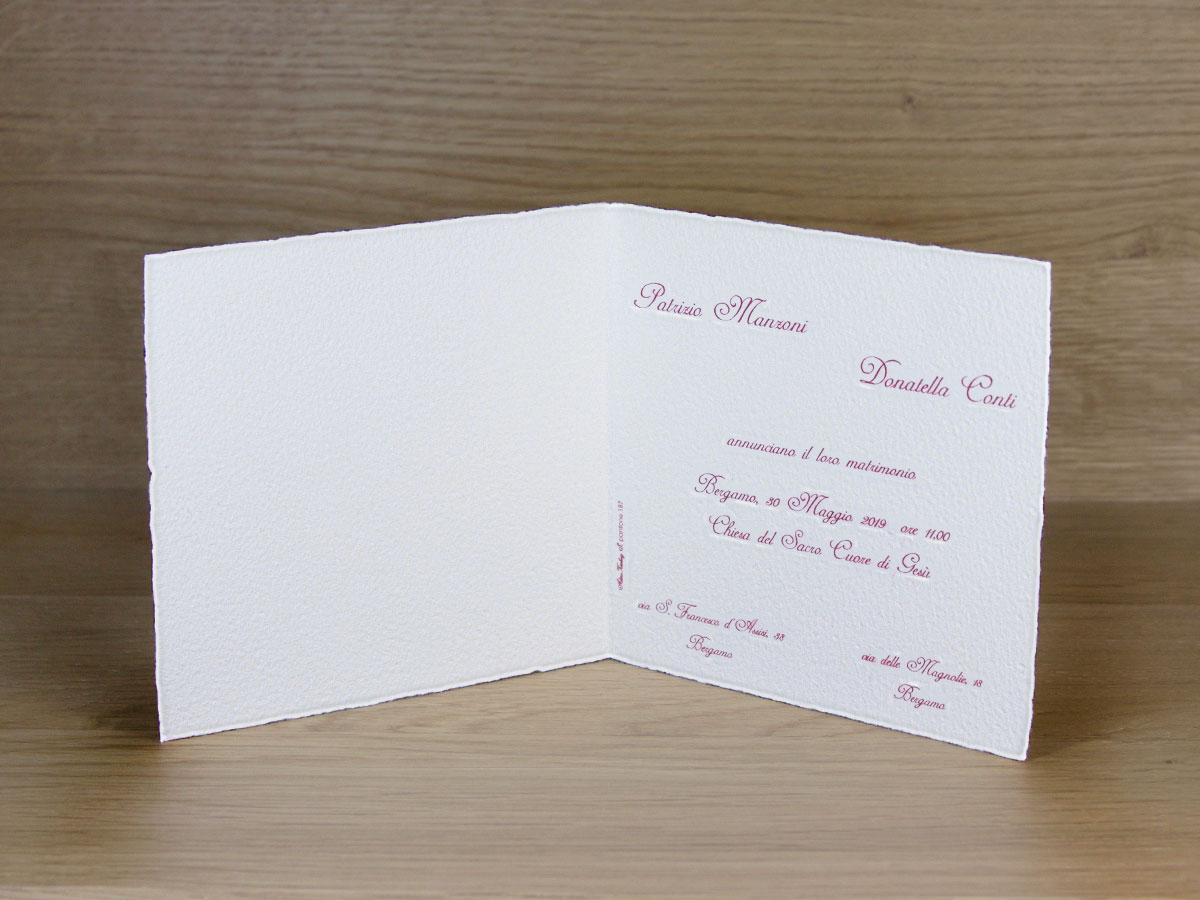 Patrizio Manzoni
Donatella Conti
annunciano il loro matrimonio
Bergamo, 30 Maggio 2019 ore 11.00
Chiesa del Sacro Cuore di Gesù
via S. Francesco d'Assisi, 38
Bergamo
via delle Magnolie, 18
Bergamo
pantone 187